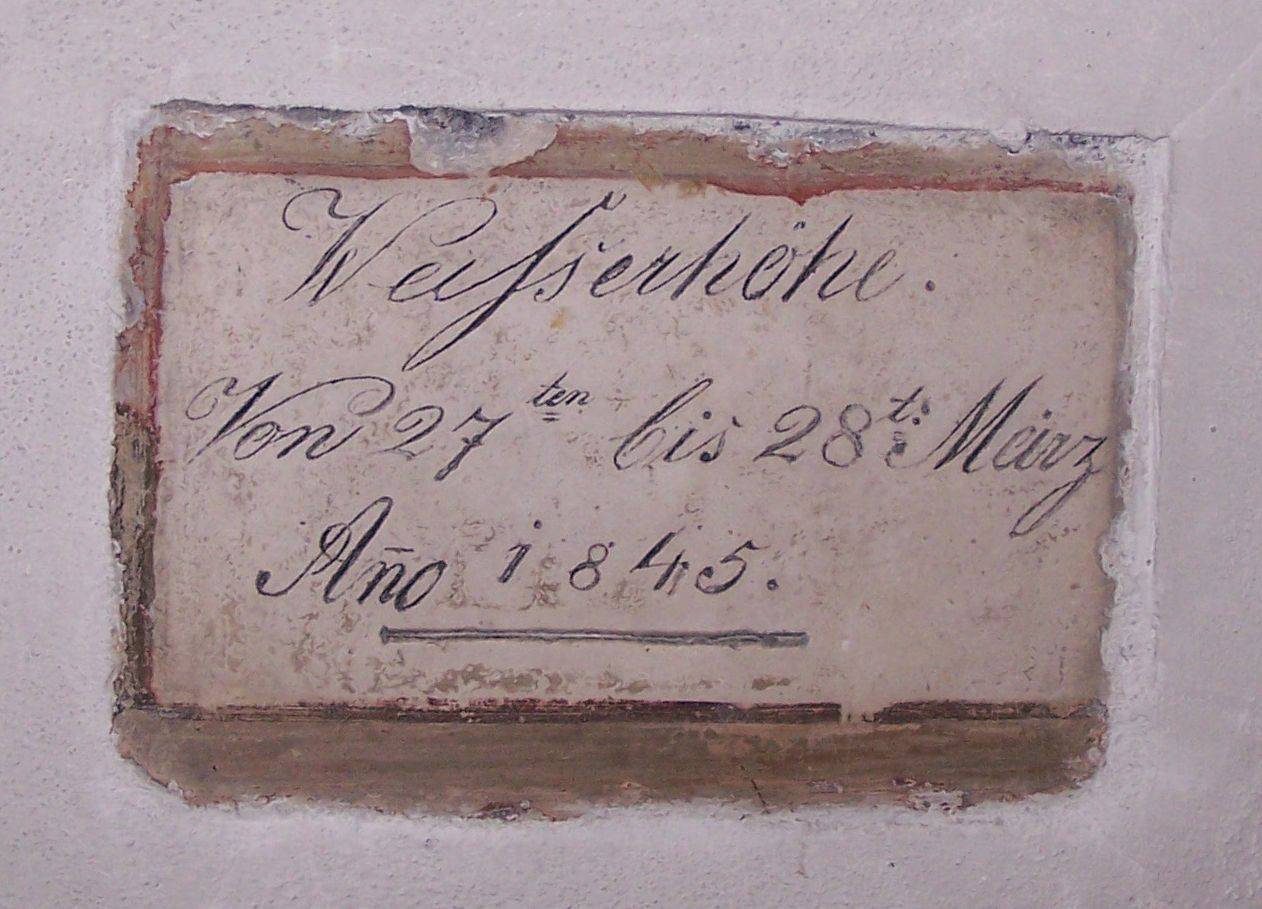 Waſserhöhe.
Von 27ten bis 28t: März
Año 1845.